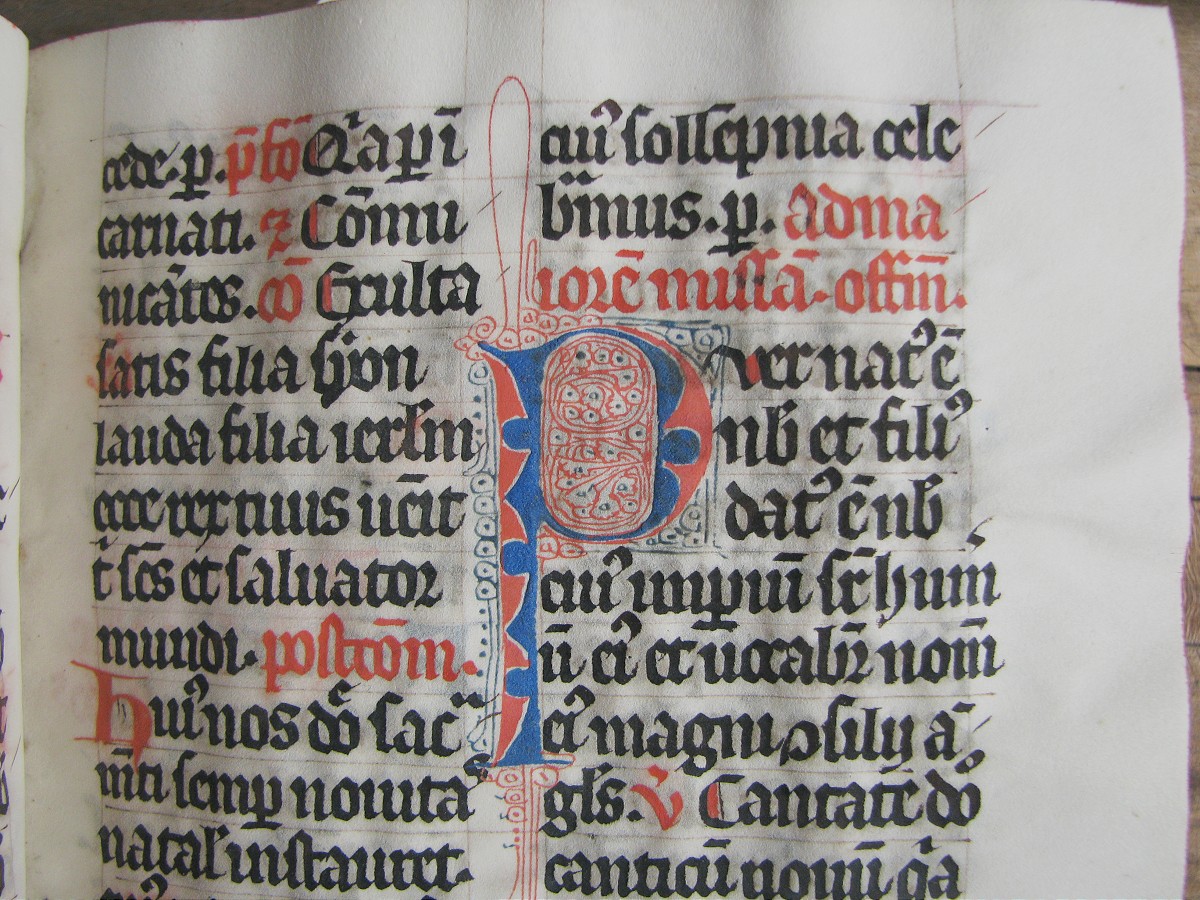 cede. p. p̄fō Q̇a p̱ ī
carnati. ⁊ Cōmu
nicātes. cō Exulta
satis filia syon
lauda filia ierlm̄
ecce rex tuus uēit
t̄ scs et saluator
mundi. postcōm.
huiꝰ nos dō̄ sac
mti semp nouita
natal' instauret.
cuiꝰ sollēpnia cele
bmus. p. Ad ma
iorē missā. offm̄.
Puer natꝰ ē
nb et filiꝰ
datꝰ ē nb
cuiꝰ impiū sr̄ hum
ū eiꝰ et uocabr̄ nom̄
eiꝰ magni ↄsilij ā
gls. v̄ Cantate dō
canticū nouū q̇a